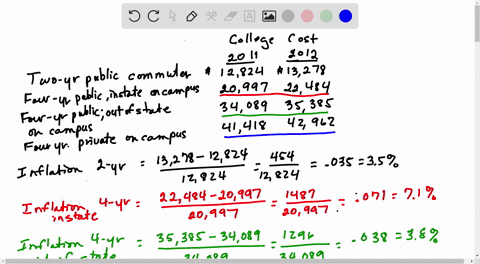 College Cost
2011 2012
Two-yr public commuter $12,824 $13,278
Four-yr public, instate on campus 20,997 22,484
Four-yr public; out of state on campus 34,089 35,385
Four yr. private on campus 41,418 42,962
Inflation 2-yr = 13,278 - 12,824 / 12,824 = 454 / 12,824 = .035 = 3.5%
Inflation 4-yr instate = 22,484 - 20,997 / 20,997 = 1487 / 20,997 = .071 = 7.1%
Inflation 4-yr = 35,385 - 34,089 / 34,089 = 1296 / 34,089 = .038 = 3.8%